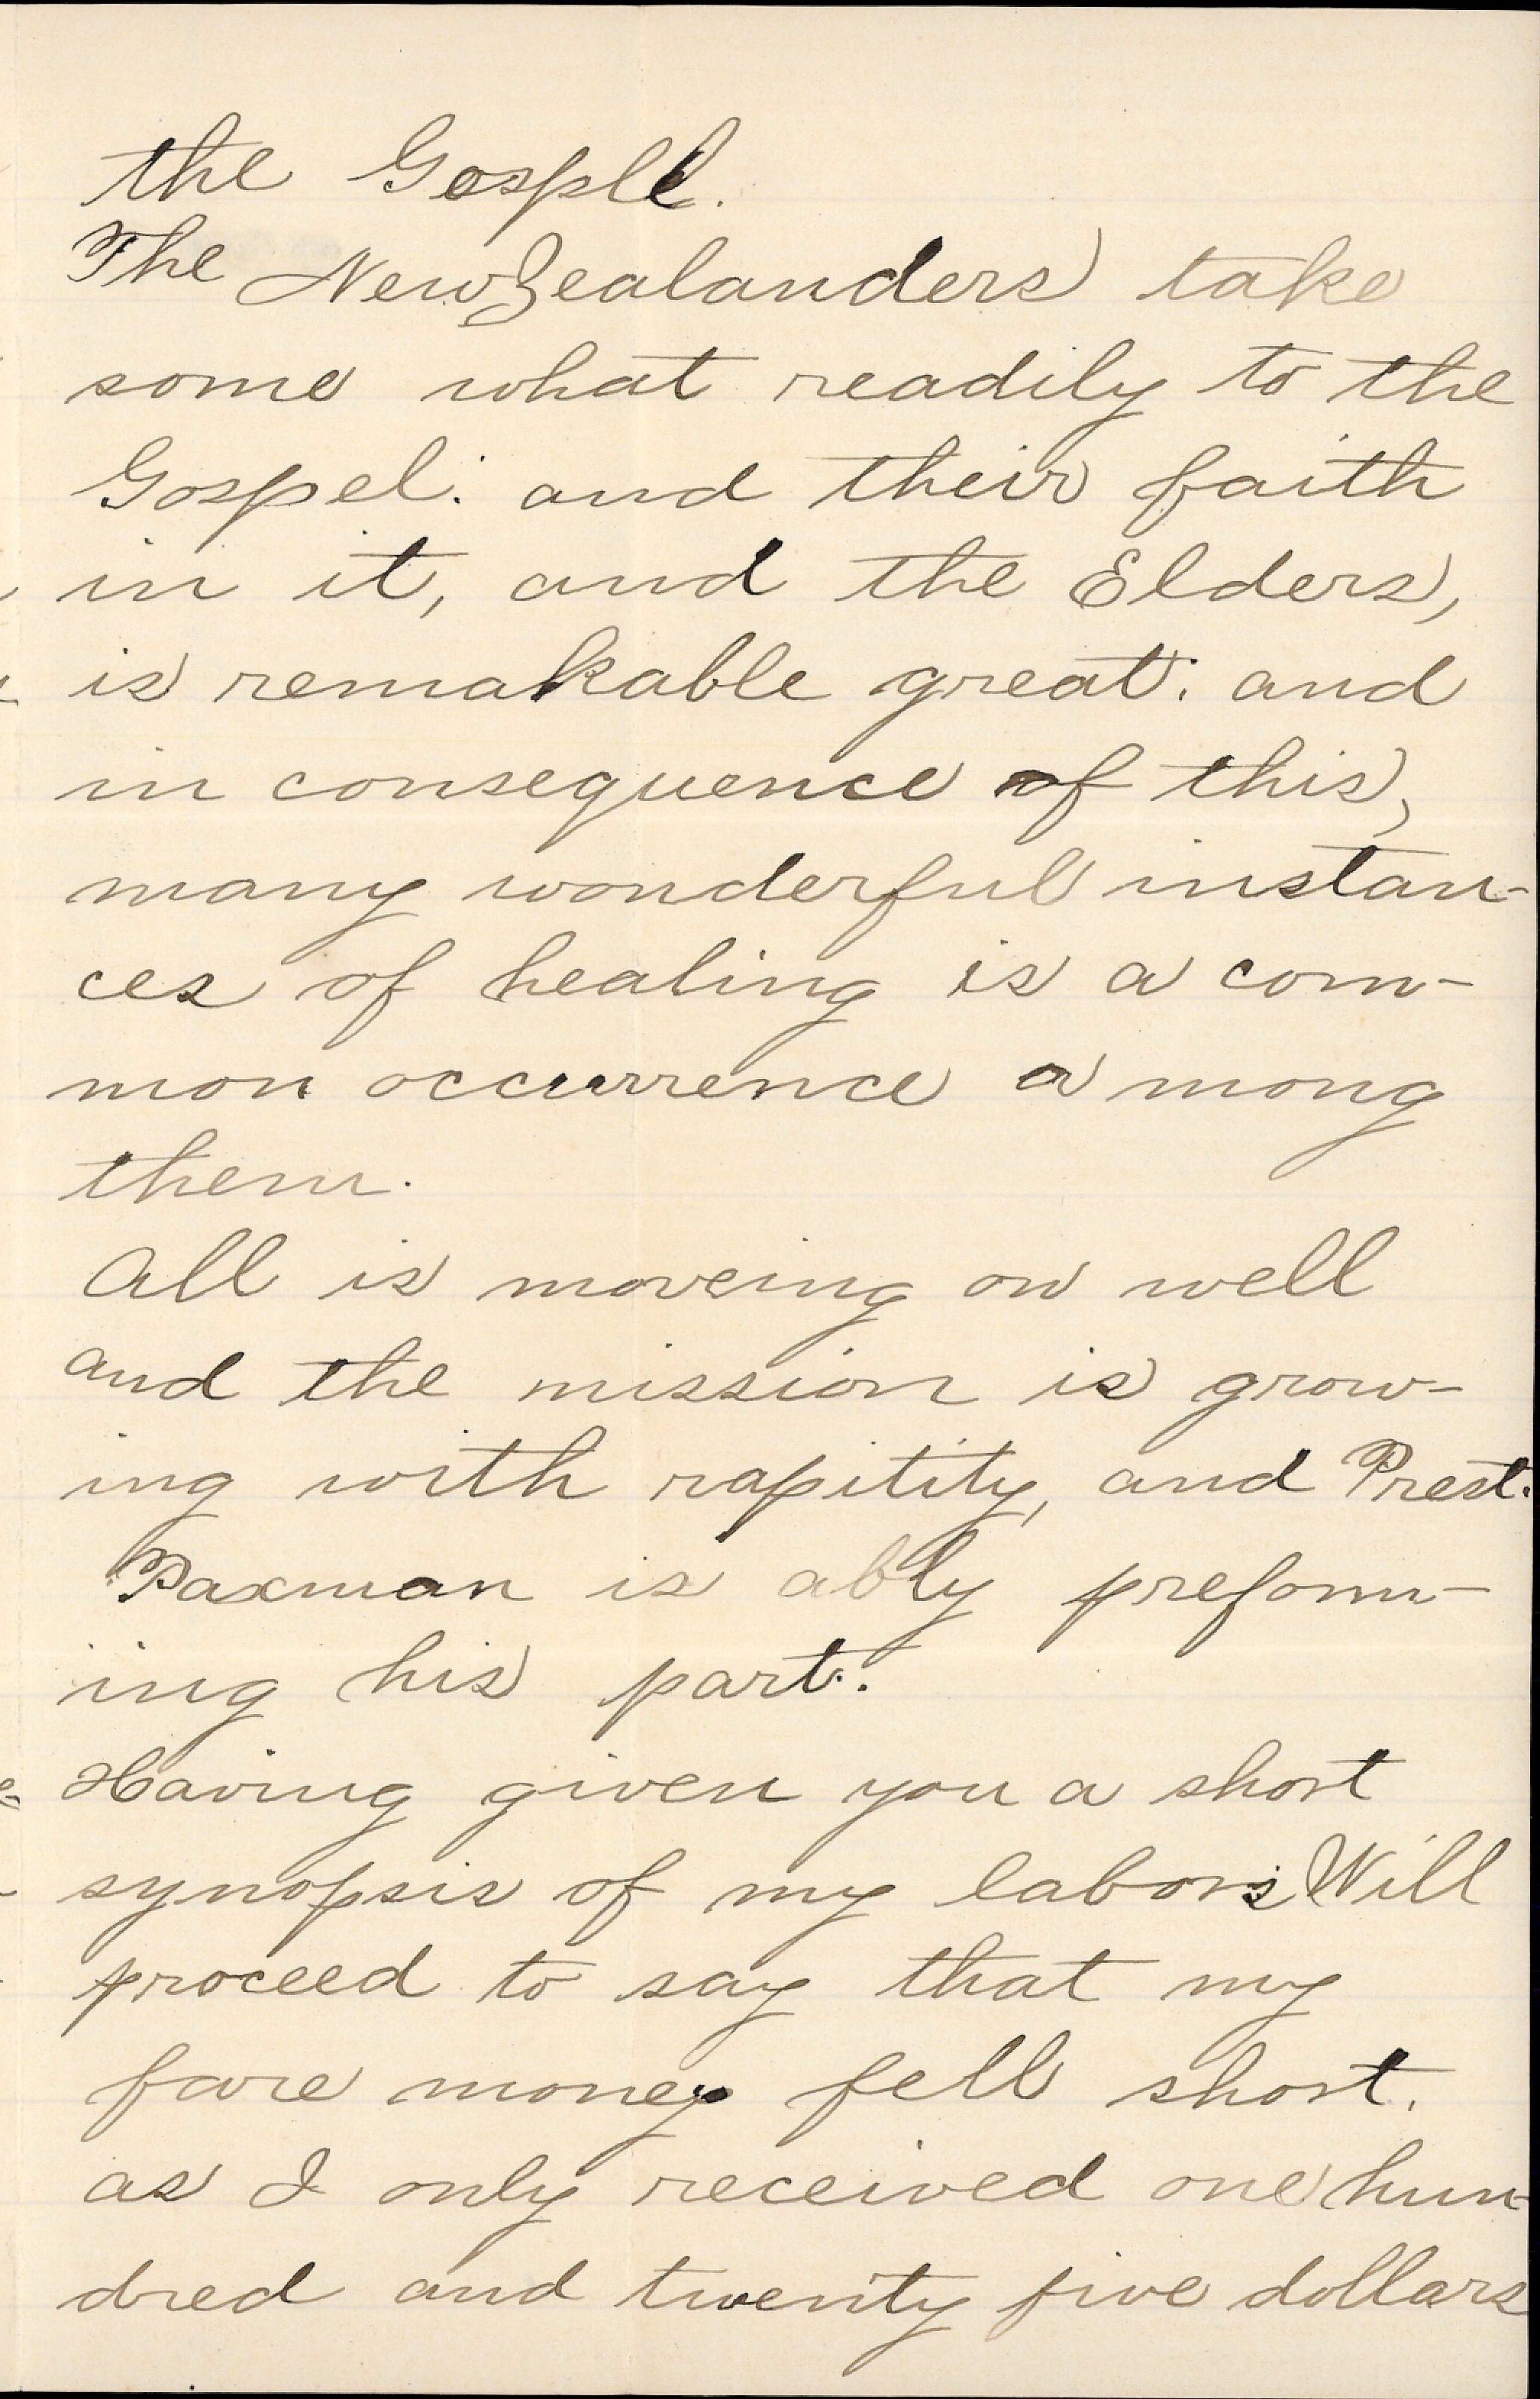 the Gosple.
The New Zealanders take
some what readily to the
Gospel: and their faith
in it, and the Elders,
is remakable great: and
in consequence of this,
many wonderful instan-
ces of healing is a com-
mon occurrence a mong
them.
All is moveing on well
and the mission is grow-
ing with rapitity, and Prest.
Paxman is ably prefom-
ing his part.
Having given you a short
synopsis of my labors Will
proceed to say that my
fare money fell short.
as I only received one hun-
dred and twenty five dollars